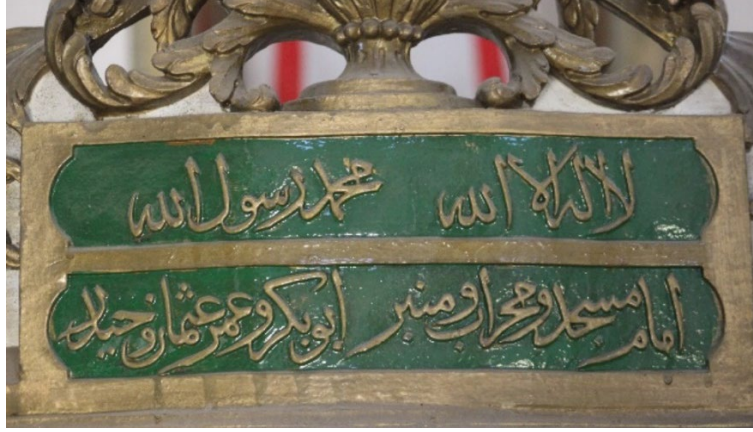 لا اله الا الله محمد رسول الله
امام مسجد و محراب و منبر ابو بكر و عمر عثمان و حيدر